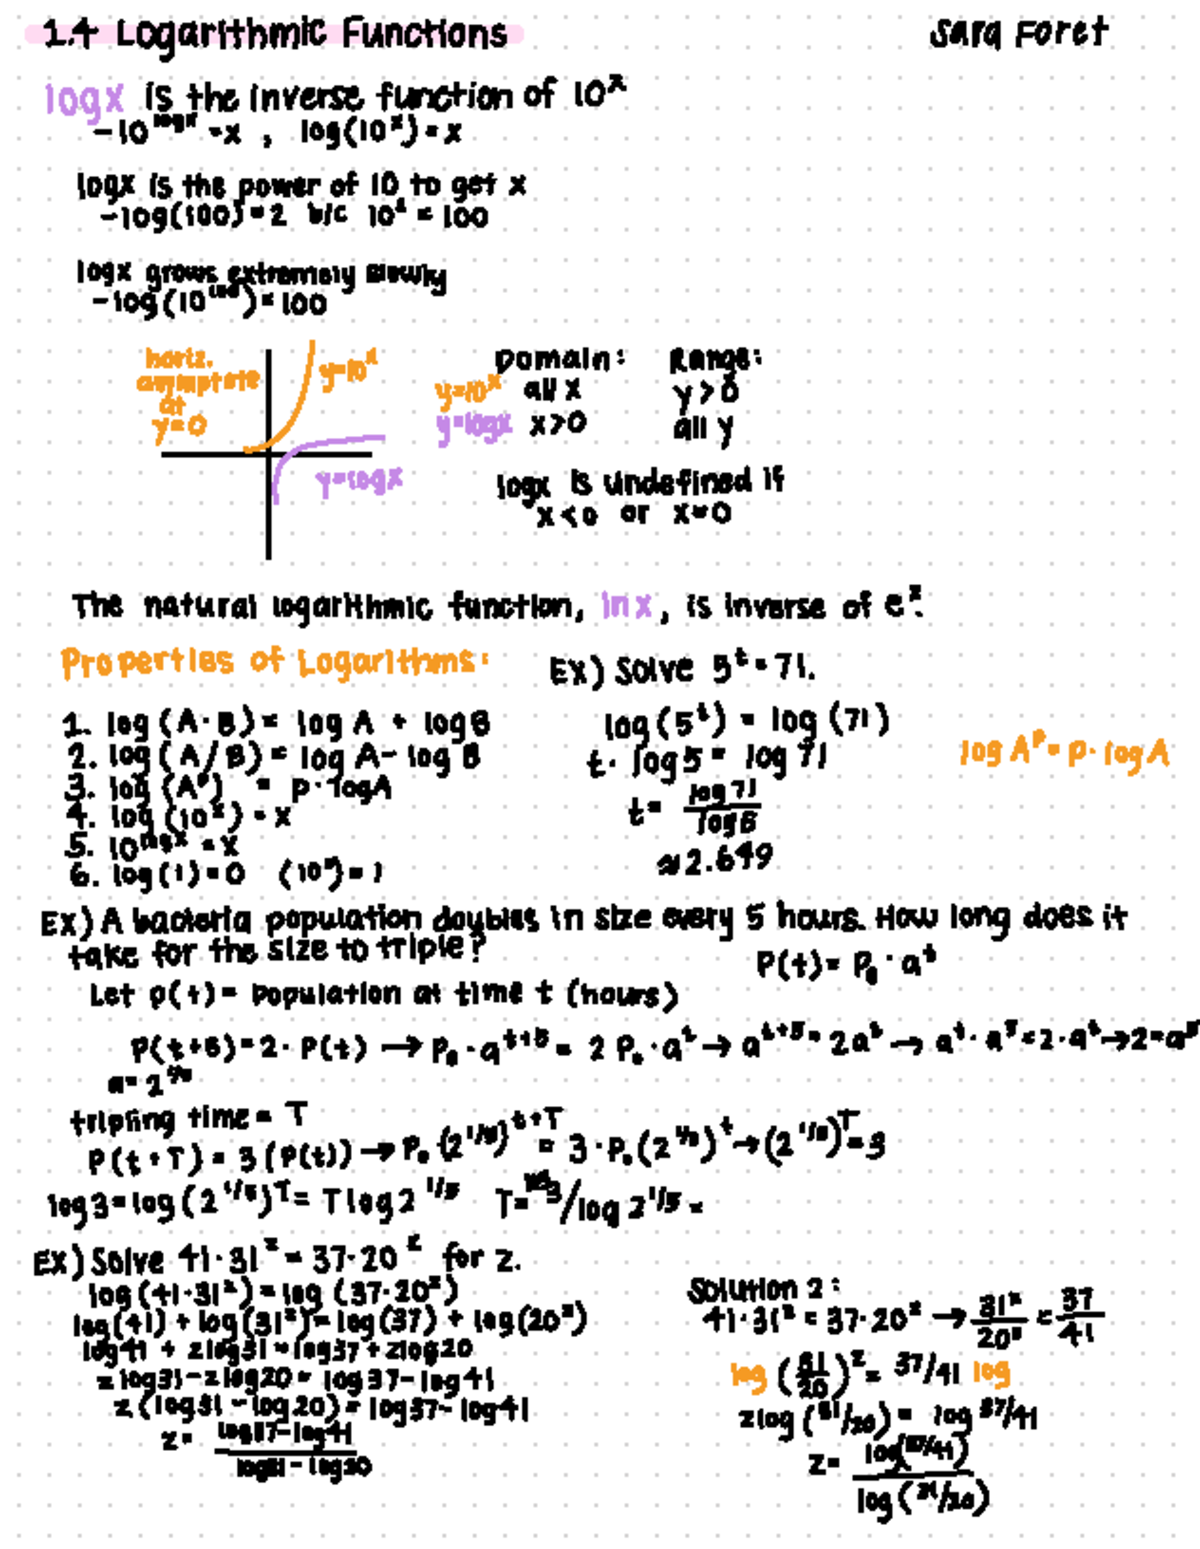 1.4 Logarithmic Functions
Sara Foret
log x is the inverse function of 10^x
- 10^log x = x , log(10^x) = x
log x is the power of 10 to get x
- log(100) = 2 b/c 10^2 = 100
log x grows extremely slowly
- log(10^100) = 100
horiz.
asymptote
at
y=0
y=10^x
y=log x
Domain: Range:
y=10^x all x y > 0
y=log x x>0 all y
log x is undefined if
x<0 or x=0
The natural logarithmic function, ln x, is inverse of e^x.
Properties of Logarithms:
1. log (A·B) = log A + log B
2. log (A/B) = log A - log B
3. log (A^p) = p·log A
4. log (10^x) = x
5. 10^log x = x
6. log(1) = 0 (10^0) = 1
Ex) Solve 5^t = 71.
log(5^t) = log(71)
t· log 5 = log 71
t = log 71 / log 5
≈ 2.649
log A^p = p· log A
Ex) A bacteria population doubles in size every 5 hours. How long does it
take for the size to triple?
P(t) = P₀ · a^t
Let p(t) = population at time t (hours)
P(t+5) = 2· P(t) → P₀ · a^t+5 = 2 P₀ · a^t → a^t+5 = 2a^t → a^t · a^5 = 2·a^t → 2=a^5
a = 2^1/5
tripling time = T
P(t+T) = 3(P(t)) → P₀ (2^1/5)^t+T = 3·P₀(2^1/5)^t → (2^1/5)^T = 3
log 3 = log(2^1/5)^T = T log 2^1/5 T= log 3/log 2^1/5 =
Ex) Solve 41·31^z = 37·20^z for z.
log(41·31^z) = log (37·20^z)
log(41) + log(31^z) = log(37) + log(20^z)
log 41 + z log 31 = log 37 + z log 20
z log 31 - z log 20 = log 37 - log 41
z (log 31 - log 20) = log 37 - log 41
z = log 37 - log 41 / log 31 - log 20
Solution 2:
41·31^z = 37·20^z → 31^z / 20^z = 37 / 41
log (31/20)^z = 37/41 log
z log (31/20) = log 37/41
z = log(37/41) / log (31/20)